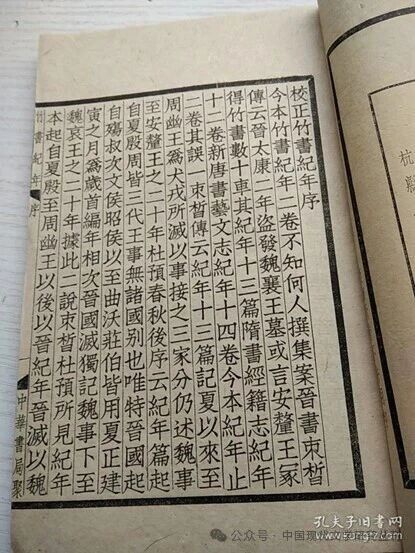 校正竹書紀年序
今本竹書紀年二卷不知何人撰集案晉書束晳
傳云晉太康二年盜發魏襄王墓或言安釐王冢
得竹書數十車其紀年十三篇隋書經籍志紀年
十二卷新唐書藝文志紀年十四卷今本紀年止
二卷其誤一束晳傳云紀年十三篇記夏以來至
周幽王爲犬戎所滅以事接之三家分仍述魏事
至安釐王之二十年杜預春秋後序云紀年篇起
自夏殷周皆三代王事無諸國別也唯特晉國起
自殤叔次文侯昭侯以至曲沃莊伯皆用夏正建
寅之月爲歲首編年相次晉國滅獨記魏事下至
魏哀王之二十年據此二說束晳杜預所見紀年
本起自夏殷至周幽王以後以晉紀年晉滅以魏
竹書紀年 序
一
中華書局聚
杭縣
公众号·中国
孔夫子旧书网
www.kongfz.com